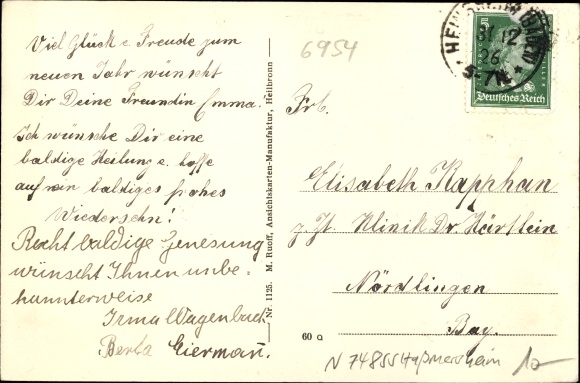 Viel Glück u. Freude zum
neuen Jahr wünscht
Dir Deine Freundin Emma.
Ich wünsche Dir eine
baldige Heilung u. hoffe
auf ein baldiges frohes
Wiedersehn!
Recht baldige Genesung
wünscht Ihnen unbe-
kannterweise
Irma Wagenbach
Berta Eiermann.
Nr. 1125. M. Ruoff, Ansichtskarten-Manufaktur, Heilbronn
6954
31.12
26
5-7N.
5
Deutsches Reich
Frl.
Elisabeth Kapphan
z. Zt. Klinik Dr. Härtlein
Nördlingen
Bay.
60 a
N 74855 Haßmersheim